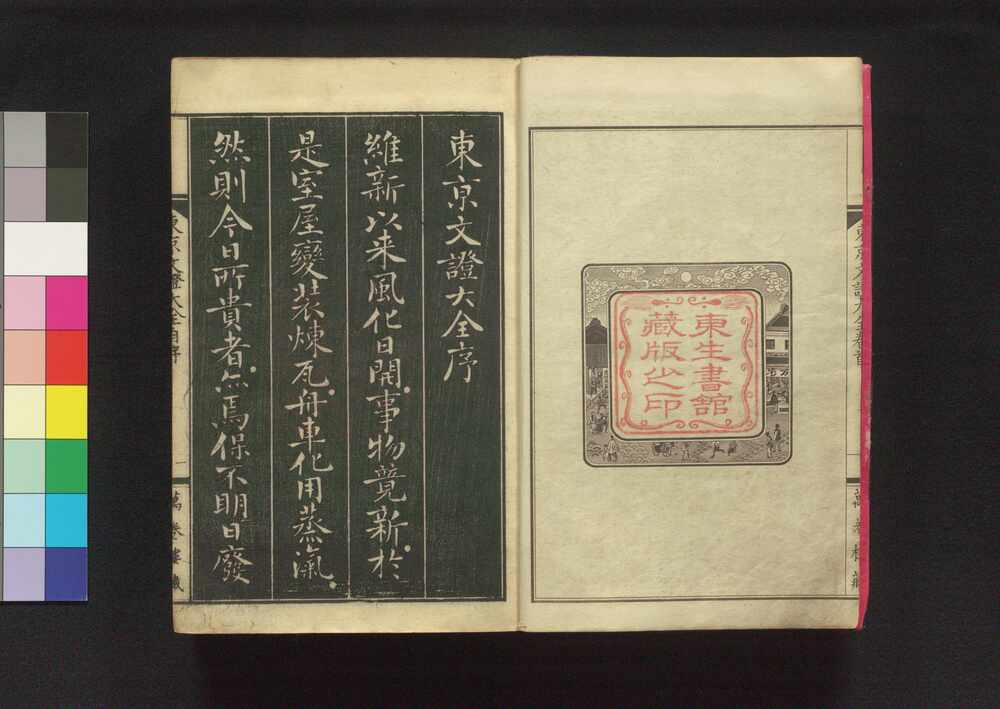 東生書館
藏版之印
東京文證大全序
維新以来風化日開事物競新於
是室屋變装煉瓦舟車化用蒸氣
然則今日所貴者無焉保不明日廢
東京文證大全卷首
一
萬卷樓藏
東京文證大全自序
一
萬卷樓藏